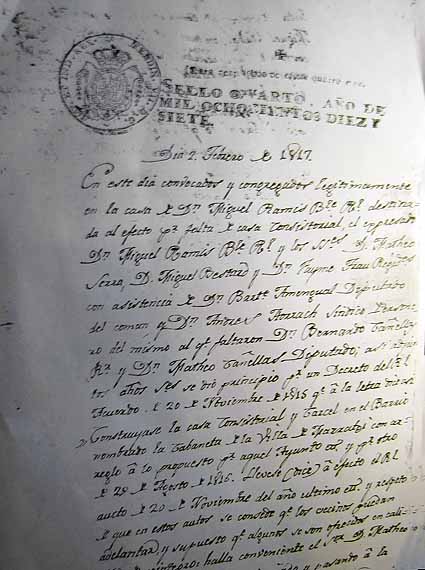 SELLO QVARTO, AÑO DE
MIL OCHOCIENTOS DIEZ Y
SIETE.
Dia 2. Febrero de 1817.
En este dia convocados y congregados legitimamente
en la casa de Dn. Miguel Ramis Ble. Rl. destina-
da al efecto pr. falta de casa Consistorial, el expresado
Dn. Miguel Ramis Ble. Rl. y los Srs. D. Matheo
Serra, D. Miguel Bestard y Dn. Jayme Frau Regidores
con asistencia de Dn. Bartme. Amengual Diputado
del comun y Dn. Andres Horrach Sindico Persone-
ro del mismo al qe. faltaron Dn. Bernardo Cañellas
Rr. y Dn. Matheo Cañellas Diputado; assi
tos años Ses. se dió principio pr. un Decreto del Rl.
Acuerdo de 20 de Noviembre de 1815 qe. à la letra dice:
Construyase la casa Consistorial y Carcel en el Barrio
nombrado la Cabaneta de la Villa de Marratxi con ar-
reglo à lo propuesto pr. aquel Ayunto. &a. y pr. otro
de 29 de Agosto de 1816. Llevese (dice) à efecto el Rl.
aucto de 20 de Noviembre del año ultimo &a. y respeto
de que en estos autos se consideró qe. los vecinos puedan
adelantar, y supuesto qe. algunos se son ofrecidos en cali-
halla conveniente el Sr. D. Matheo
y pasanto à la